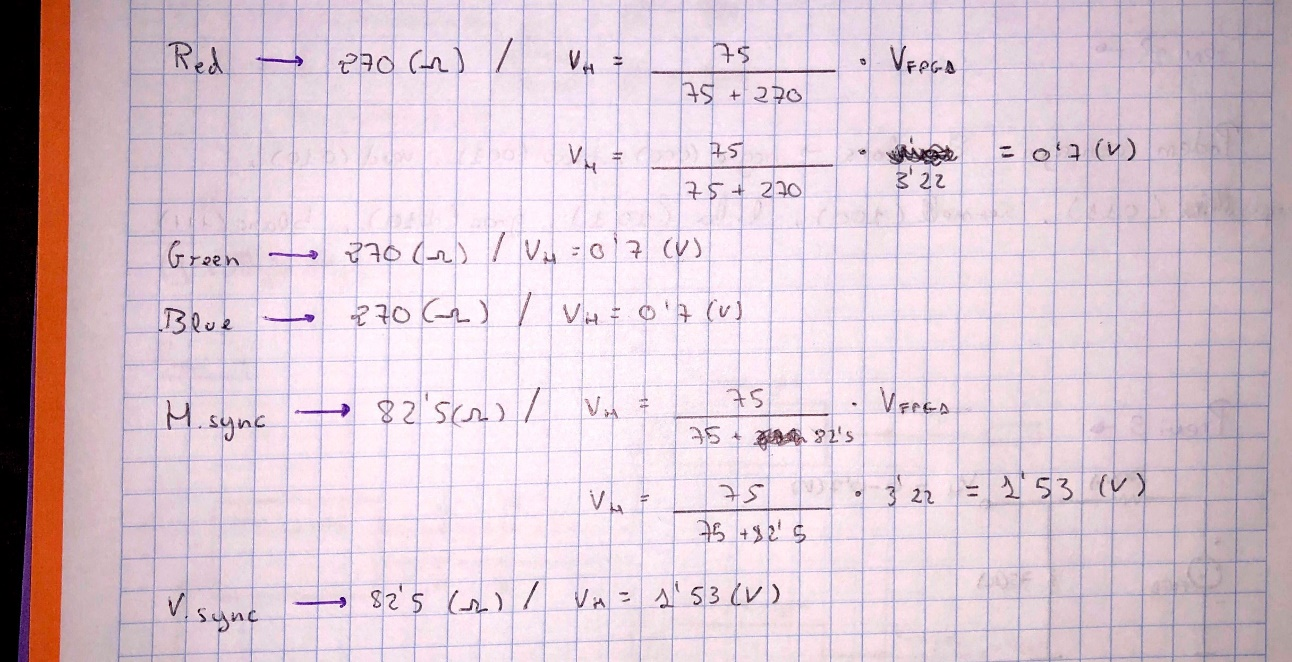 Red → 270 (Ω) / V_H = 75 / (75 + 270) · V_FPGA
V_H = 75 / (75 + 270) · 3'22 = 0'7 (V)
Green → 270 (Ω) / V_H = 0'7 (V)
Blue → 270 (Ω) / V_H = 0'7 (V)
H. sync → 82'5 (Ω) / V_H = 75 / (75 + 82'5) · V_FPGA
V_H = 75 / (75 + 82'5) · 3'22 = 1'53 (V)
V. sync → 82'5 (Ω) / V_H = 1'53 (V)